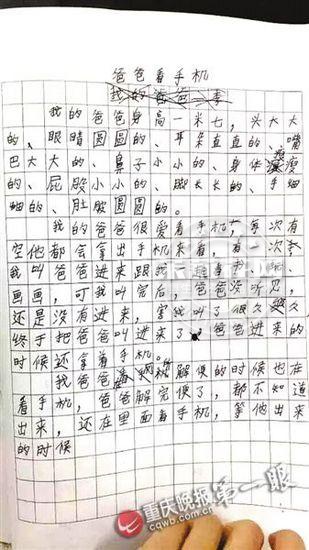 爸爸看手机
我的爸爸 李
我的爸爸身高一米七，头大大
的、眼睛圆圆的、耳朵直直的、嘴
巴大大的、鼻子小小的、身体瘦瘦
的、屁股小小的、脚长长的、手细
细的、肚皮圆圆的。
我的爸爸很爱看手机，每次有
空他都会拿出手机来看，有一次
我叫爸爸进来跟我
画画，可我叫完后，爸爸没听见，
还是没有进来，害我叫了很久
终于把爸爸叫进来了 爸爸进来的
时候还拿着手机。
我爸爸 解便的时候也在
看手机，爸爸解完便了，都不知道
出来，还在里面看手机，等他出来
的时候
重庆晚报 第一眼
www.cqwb.com.cn